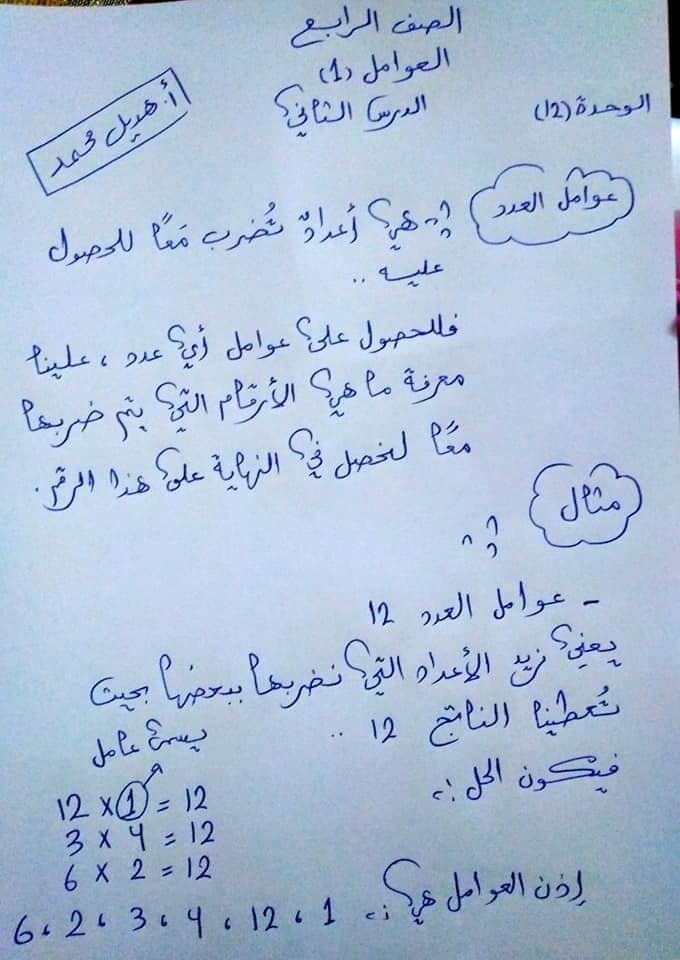 الصف الرابع
العوامل (1)
الوحدة (12) الدرس الثاني
أ. هديل محمد
عوامل العدد :- هي أعدادٌ تُضرب مَعًا للحصول
عليه ..
فللحصول على عوامل أي عدد ، علينا
معرفة ما هي الأرقام التي يتم ضربها
معًا لنحصل في النهاية على هذا الرقم .
مثال :-
- عوامل العدد 12
يعني نريد الأعداد التي نضربها ببعضها بحيث
تُعطينا الناتج 12 ..
فيكون الحل :-
يسمى عامل
12 × 1 = 12
3 × 4 = 12
6 × 2 = 12
إذن العوامل هي :- 1 ، 12 ، 4 ، 3 ، 2 ، 6